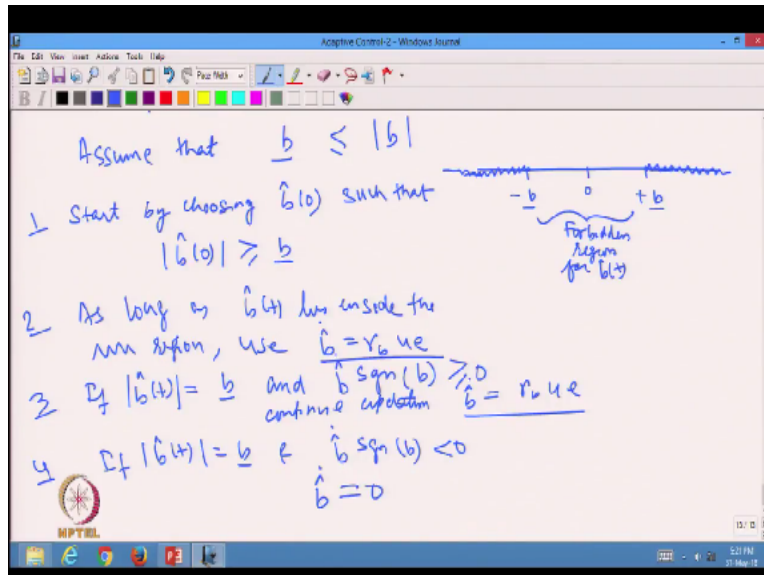 Adaptive Control-2 - Windows Journal
File Edit View Insert Actions Tools Help
Page Width
B I
Assume that b̲ ≤ |b|
-b̲ 0 +b̲
Forbidden
region
for b̂(t)
1 Start by choosing b̂(0) such that
|b̂(0)| ≥ b̲
2 As long as b̂(t) lies inside the
region, use b̂̇ = γ_b u e
3 If |b̂(t)| = b̲ and b̂̇ sgn(b) ≥ 0
continue b̂̇ = γ_b u e
4 If |b̂(t)| = b̲ & b̂̇ sgn(b) < 0
b̂̇ = 0
NPTEL
13/13
5:21 PM
31-May-18